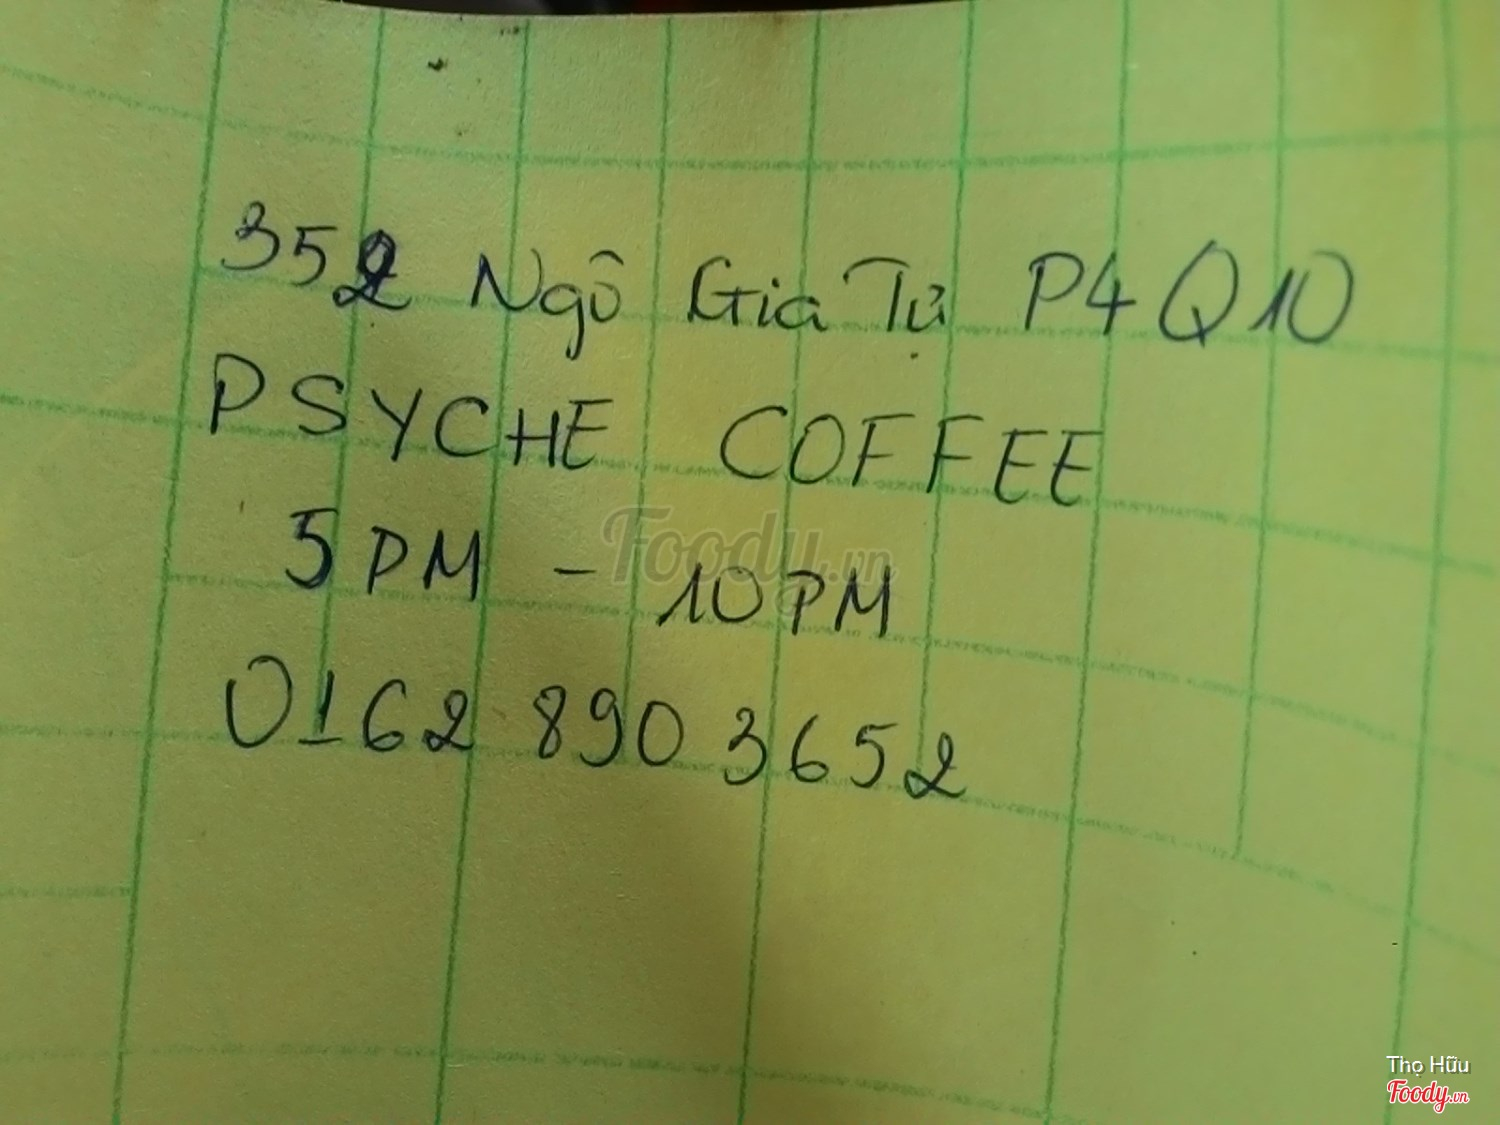 352 Ngô Gia Tự P4 Q10
PSYCHE COFFEE
5PM - 10PM
0162 890 3652
Foody.vn
Thọ Hữu
Foody.vn